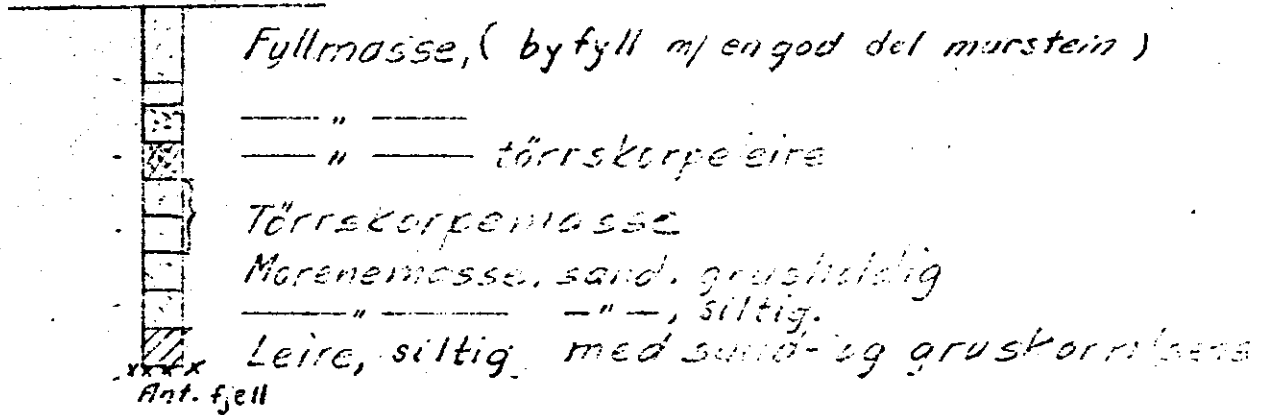 Fyllmasse, ( byfyll m/ en god del murstein )
—— " ——
—— " —— törrskorpeleire
Törrskorpemasse
Morenemasse, sand. grusholdig
—— " —— —"—, siltig.
Leire, siltig med sand- og gruskorn
Ant. fjell